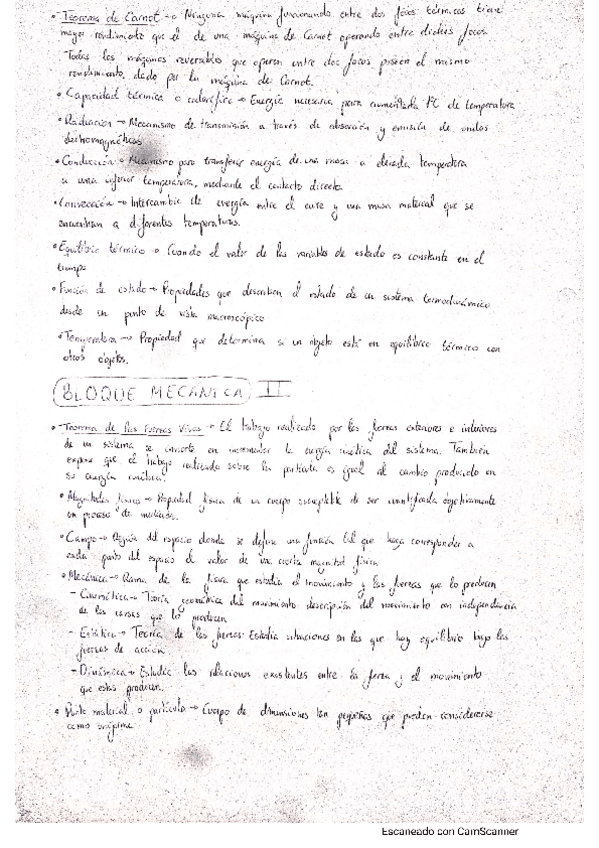 • Teorema de Carnot → Ninguna máquina funcionando entre dos focos térmicos tiene
mayor rendimiento que el de una máquina de Carnot operando entre dichos focos.
Todas las máquinas reversibles que operen entre dos focos poseen el mismo
rendimiento, dado por la máquina de Carnot.
• Capacidad térmica o calorífica → Energía necesaria para aumentarla 1ºC de temperatura
• Radiación → Mecanismo de transmisión a través de absorción y emisión de ondas
electromagnéticas
• Conducción → Mecanismo para transferir energía de una masa a elevada temperatura
a una inferior temperatura, mediante el contacto directo.
• Convección → Intercambio de energía entre el aire y una masa material que se
encuentran a diferentes temperaturas.
• Equilibrio térmico → Cuando el valor de las variables de estado es constante en el
tiempo
• Función de estado → Propiedades que describen el estado de un sistema termodinámico
desde un punto de vista macroscópico
• Temperatura → Propiedad que determina si un objeto está en equilibrio térmico con
otros objetos.
BLOQUE MECÁNICA II
• Teorema de las Fuerzas Vivas → El trabajo realizado por las fuerzas exteriores e interiores
de un sistema se invierte en incrementar la energía cinética del sistema. También
expresa que el trabajo realizado sobre la partícula es igual al cambio producido en
su energía cinética.
• Magnitudes físicas → Propiedad física de un cuerpo susceptible de ser cuantificada objetivamente
en proceso de medición.
• Campo → Región del espacio donde se define una función tal que haga corresponder a
cada punto del espacio el valor de una cierta magnitud física
• Mecánica → Rama de la física que estudia el movimiento y las fuerzas que lo producen
– Cinemática → Teoría geométrica del movimiento descripción del movimiento con independencia
de las causas que lo producen
– Estática → Teoría de las fuerzas. Estudia situaciones en las que hay equilibrio bajo las
fuerzas de acción
– Dinámica → Estudia las relaciones existentes entre la fuerza y el movimiento
que estas producen.
• Punto material o partícula → Cuerpo de dimensiones tan pequeñas que pueden considerarse
como
Escaneado con CamScanner